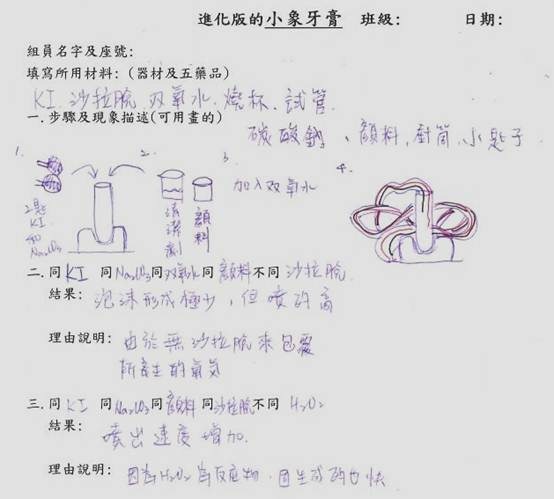 進化版的小象牙膏 班級： 日期：
組員名字及座號：
填寫所用材料：(器材及五藥品)
KI、沙拉脫、双氧水、燒杯、試管、
碳酸鈉、顏料、封筒、小匙子
一. 步驟及現象描述(可用畫的)
1. 2. 3. 4.
2匙 KI 和 Na₂CO₃
清潔劑
顏料
加入双氧水
二. 同KI 同Na₂CO₃同双氧水同顏料不同沙拉脫
結果：泡沫形成極少，但噴的高
理由說明：由於無沙拉脫來包覆
所產生的氧氣
三. 同KI 同Na₂CO₃同顏料同沙拉脫不同 H₂O₂
結果：噴出速度增加.
理由說明：因為H₂O₂為反應物，因生成的也快